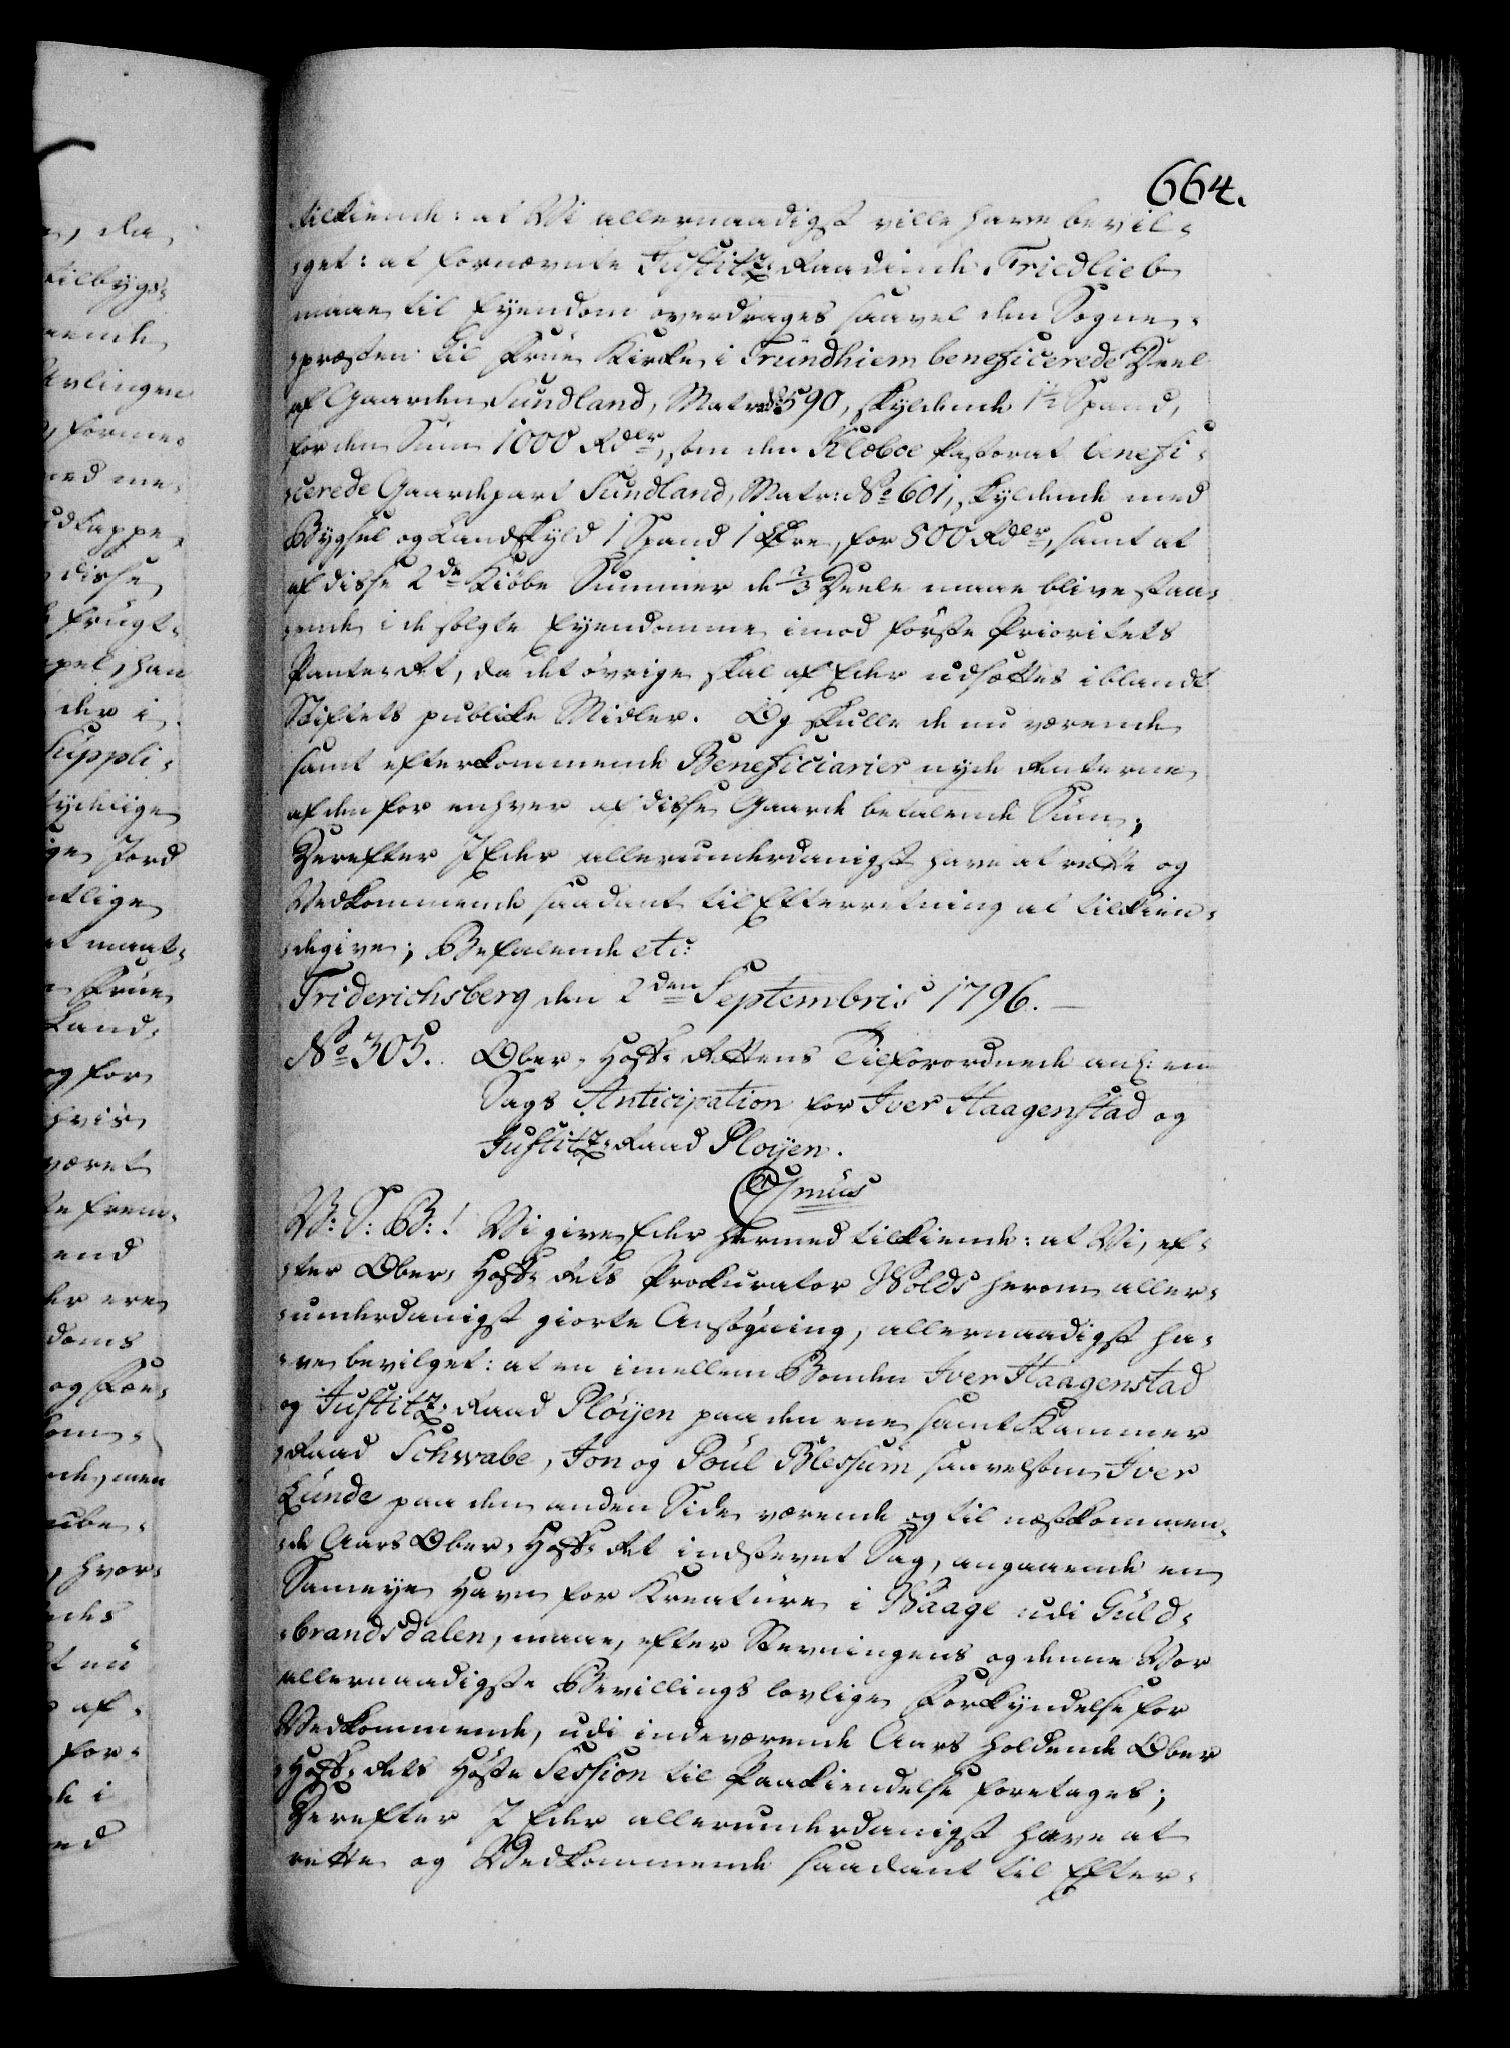 664.
tilkiende: at Vi allernaadigst ville have bevil-
-get: at fornævnte Justitz-Raadinde Friedlieb
maae til Eyendom overdrages saavel den Sogne-
-præsten til Frue Kirke i Trundhiem beneficerede Deel
af Gaarden Sundland, Matr: No 590, skyldende 1½ Spand,
for den Sum 1000 Rdlr, som den Klæboe Pastorat benefi-
-cerede Gaardepart Sundland, Matr: No 601, skyldende med
Bygsel og Landskyld 1 Spand 1 Øre, for 500 Rdlr, samt at
af disse 2de Kiøbe Summer de 2/3 Deele maae blive staa-
-ende i de solgte Eyendomme imod første Prioritets
Pante-Ret, da det øvrige skal af Eder udsættes iblandt
Stiftets publicke Midler. Og skulle de nu værende
samt efterkommende Beneficiarier nyde Renterne
af den for enhver af disse Gaarde betalende Sum;
Derefter I Eder allerunderdanigst have at rette og
Vedkommende saadant til Efterretning at tilkien-
-degive; Befalende etc:
Friderichsberg den 2den Septembris 1796.
No 305. Ober-Hof-Rettens Tilforordnede anl: en
Sags Anticipation for Iver Haagenstad og
Justitz-Raad Ployen.
V: S: B:! Vi give Eder hermed tilkiende: at Vi, ef-
-ter Ober-Hof-Rets Prokurator Wolds herom aller-
-underdanigst giorte Ansøgning, allernaadigst ha-
-ve bevilget: at en imellem Bonden Iver Haagenstad
og Justitz-Raad Pløyen paa den ene samt Kammer
-Raad Schwabe, Jon og Poul Blessum saavelsom Iver
Lunde paa den anden Side værende og til næstkommen-
-de Aars Ober-Hof-Ret indstevnt Sag, angaaende en
Sameye Havn for Kreature i Waage udi Guld-
-brandsdalen, maae, efter Stevningens og denne Vor
allernaadigste Bevillings lovlige Forkyndelse for
Vedkommende, udi indeværende Aars holdende Ober
-Hof-Rets Høste Session til Paakiendelse foretages;
Derefter I Eder allerunderdanigst have at
rette og Vedkommende saadant til Efter-